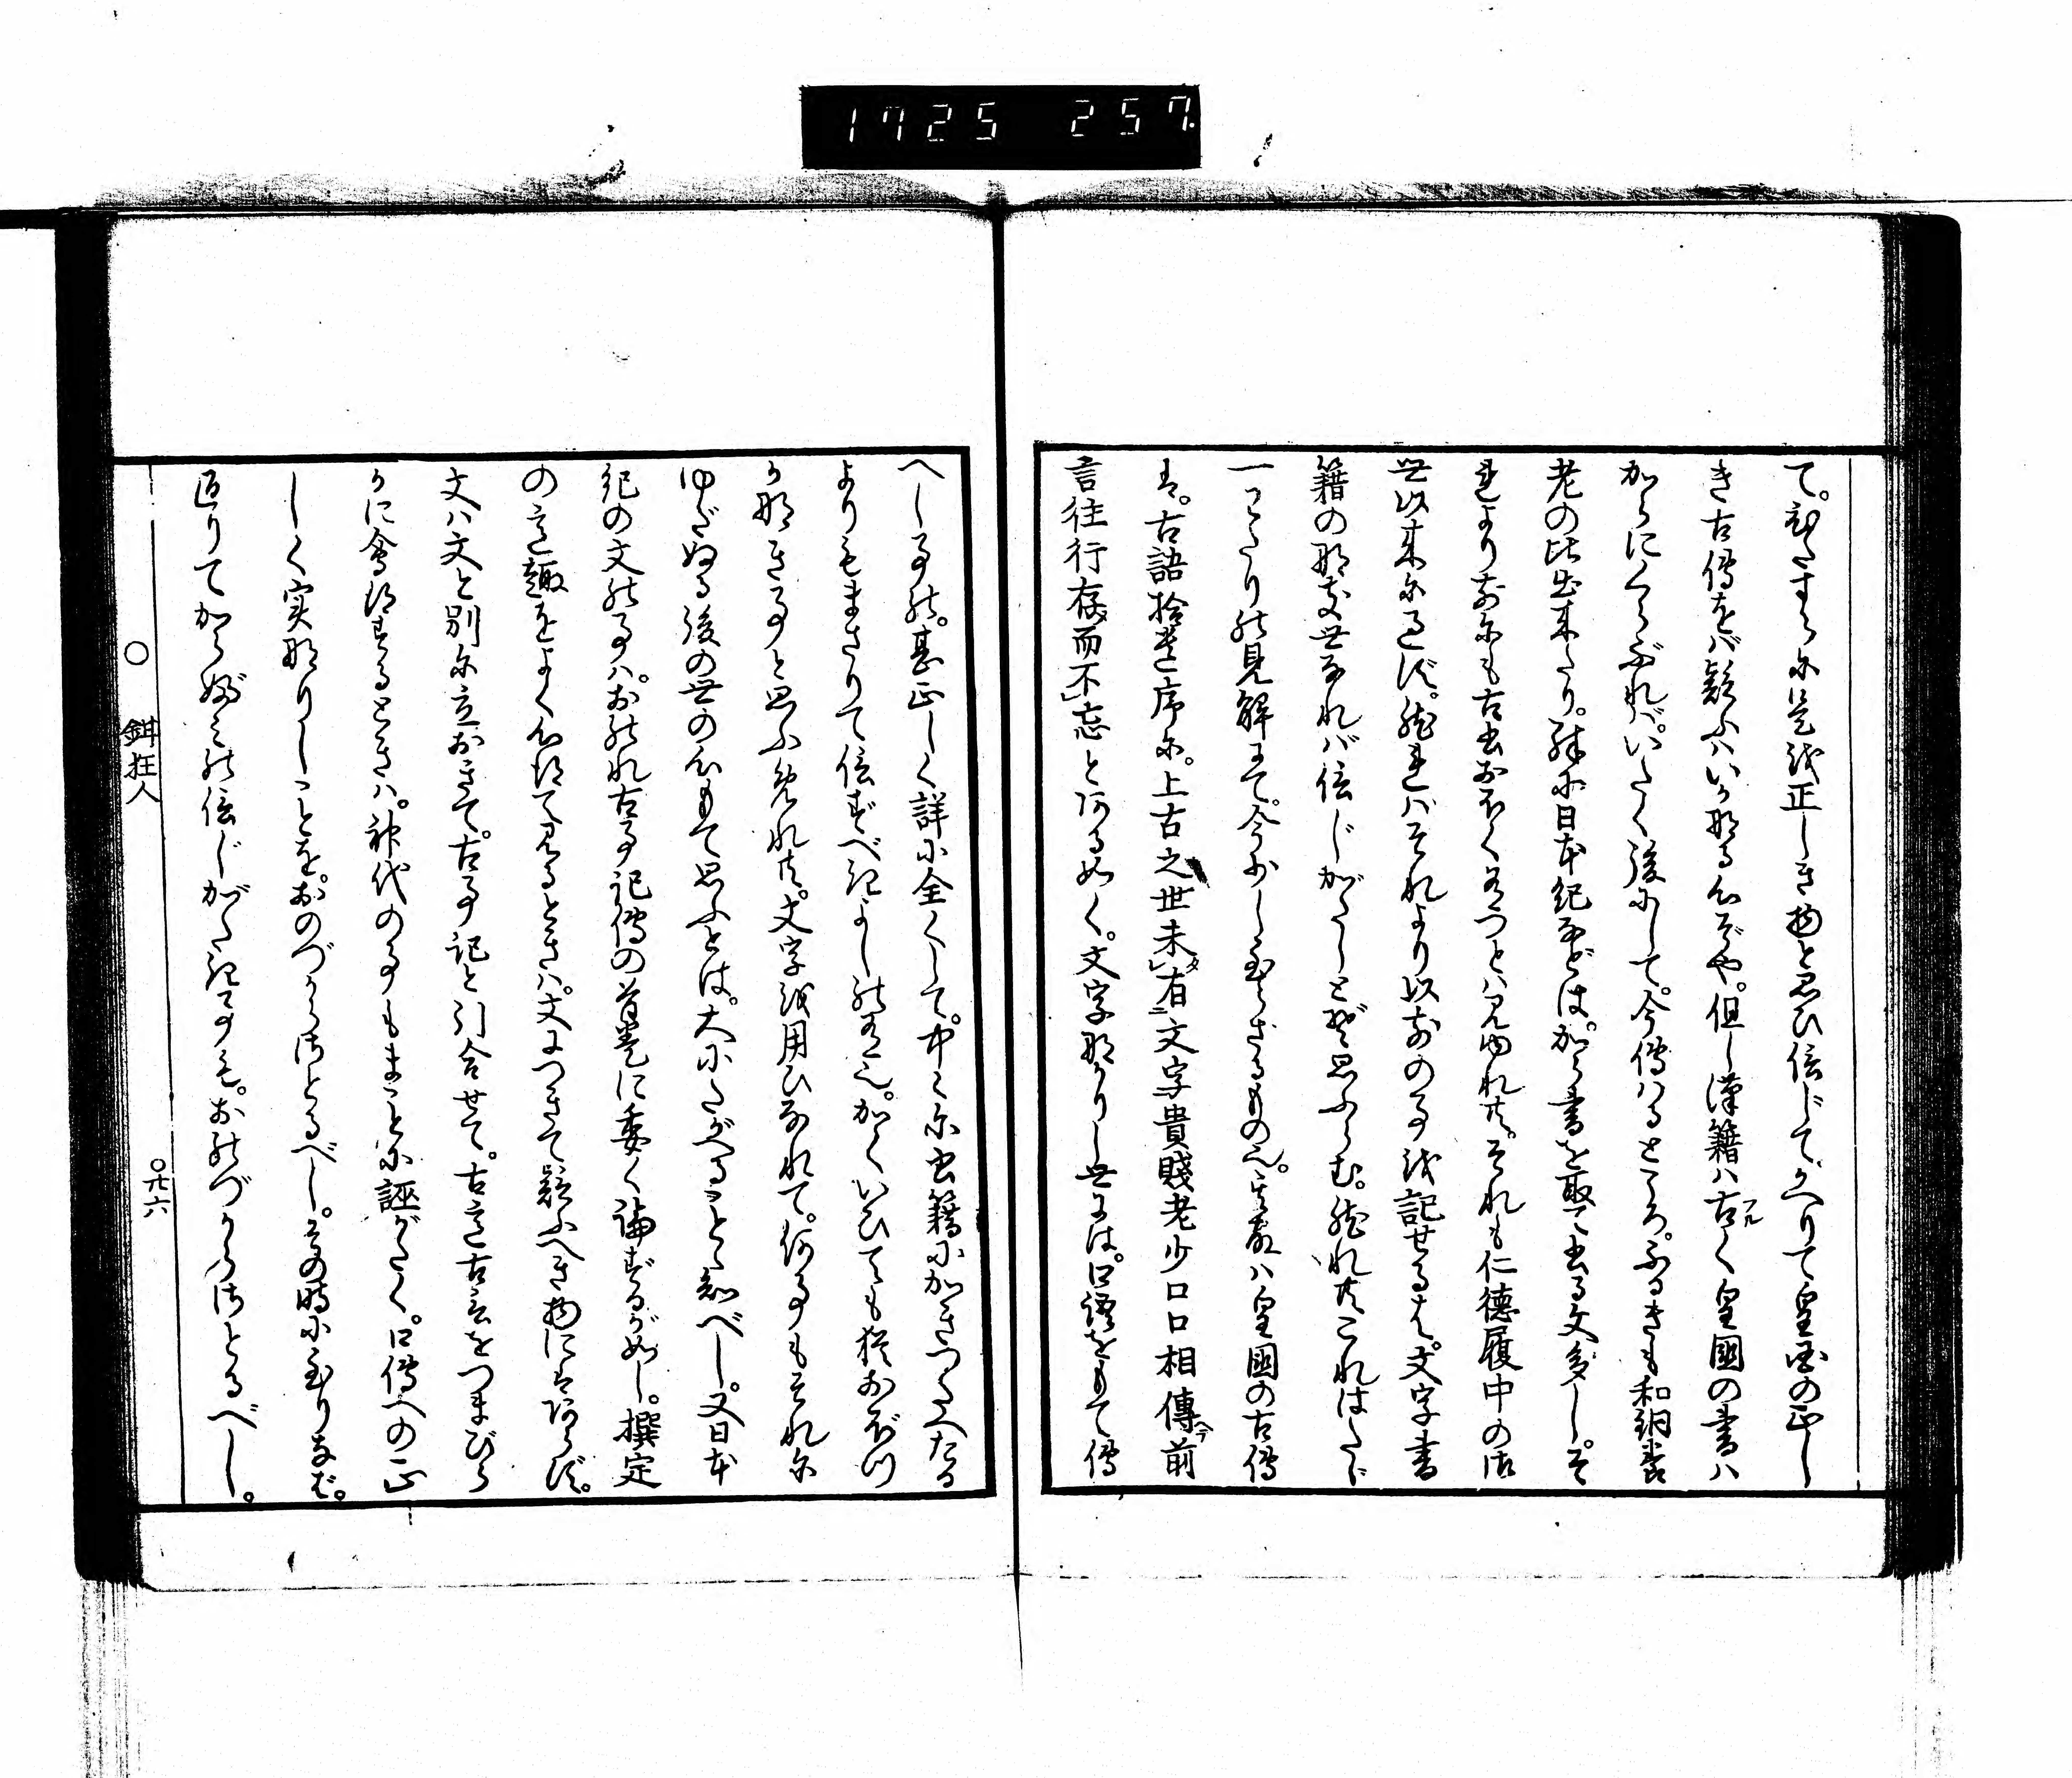 1725 257
て。ひたすらに是を正しき物と思ひ信じてかへりて皇国の正し
き古傳をバ疑ふハいかなる心ぞや。但し漢籍ハ古く皇國の書ハ
からにくらぶれバ。いたく後にして。今傳ハるところ。ふるきも和銅養
老の比出来たり。殊に日本紀などは。から書を取て書る文多し。そ
れより前にも古書おほく有つとハ見ゆれ共。それも仁徳履中の御
世以来に過ず。然ればそれより以前の事を記せるは。文字書
籍の那き世なれバ信じがたしとぞ思ふらむ。然れ共これはたゞ
一わたりの見解にて。今少し至らざるもの也。其故ハ皇國の古傳
は。古語拾遺序に。上古之世未有文字貴賤老少口口相傳前
言往行存而不忘とある如く。文字那かりし世には。口語をもて傳
へし事の。甚正しく詳に全くして。中々に書籍にかきつたへたる
よりもまさりて信ずべきよしの有也。かくいひても猶おぼつ
か那き事と思ふめれ共。文字を用ひなれて。何事もそれに
ゆだぬる後の世の心もて思ふとは。大にたがへることを知べし。又日本
紀の文の事ハ。おのれ古事記傳の首巻に委く論ずるが如し。撰定
の意趣をよく心得て見るときハ。文につきて疑ふへき物にはあらず。
文ハ文と別に立おきて。古事記と引合せて。古意古言をつまびら
かに會得するときハ。神代の事もまことに誣がたく。口傳への正
しく実那りしことを。おのづからさとるべし。その時に至りなば。
返りてからぶみの信じがたき事も。おのづからさとるべし。
○ 鉗狂人
○廿六